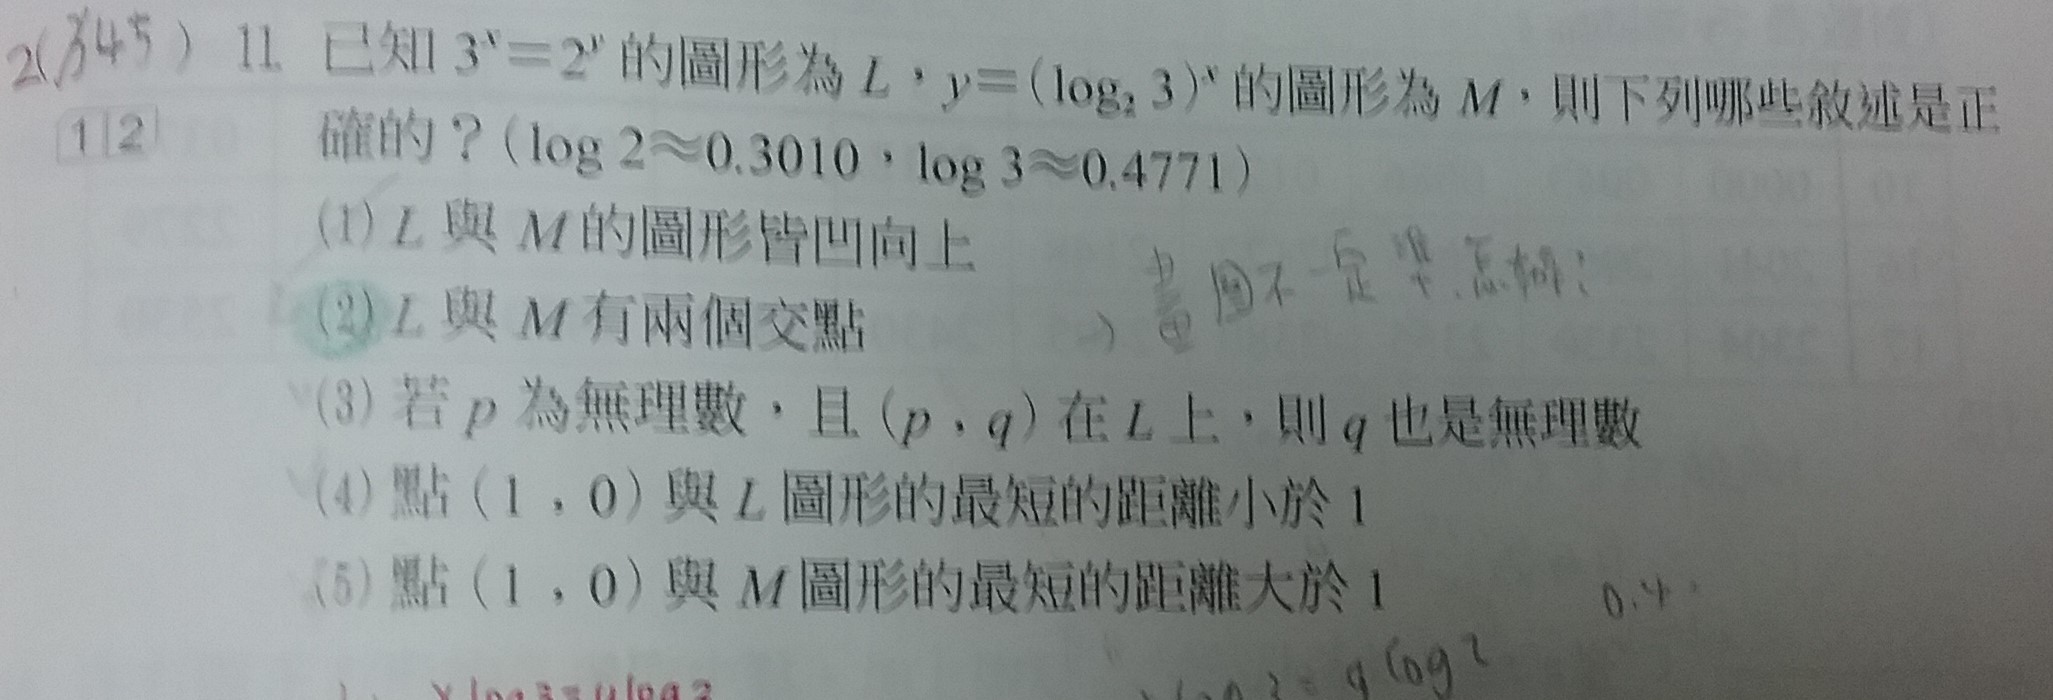 2(345) 11. 已知 3ˣ=2ʸ 的圖形為 L,y=(log₂ 3)ˣ 的圖形為 M,則下列哪些敘述是正
12 確的?(log 2≈0.3010,log 3≈0.4771)
(1) L 與 M 的圖形皆凹向上
(2) L 與 M 有兩個交點
畫圖不一定準,怎辦?
(3) 若 p 為無理數,且 (p,q) 在 L 上,則 q 也是無理數
(4) 點 (1,0) 與 L 圖形的最短的距離小於 1
(5) 點 (1,0) 與 M 圖形的最短的距離大於 1
0.4
x log 3 = y log 2
log 3 = q log 2